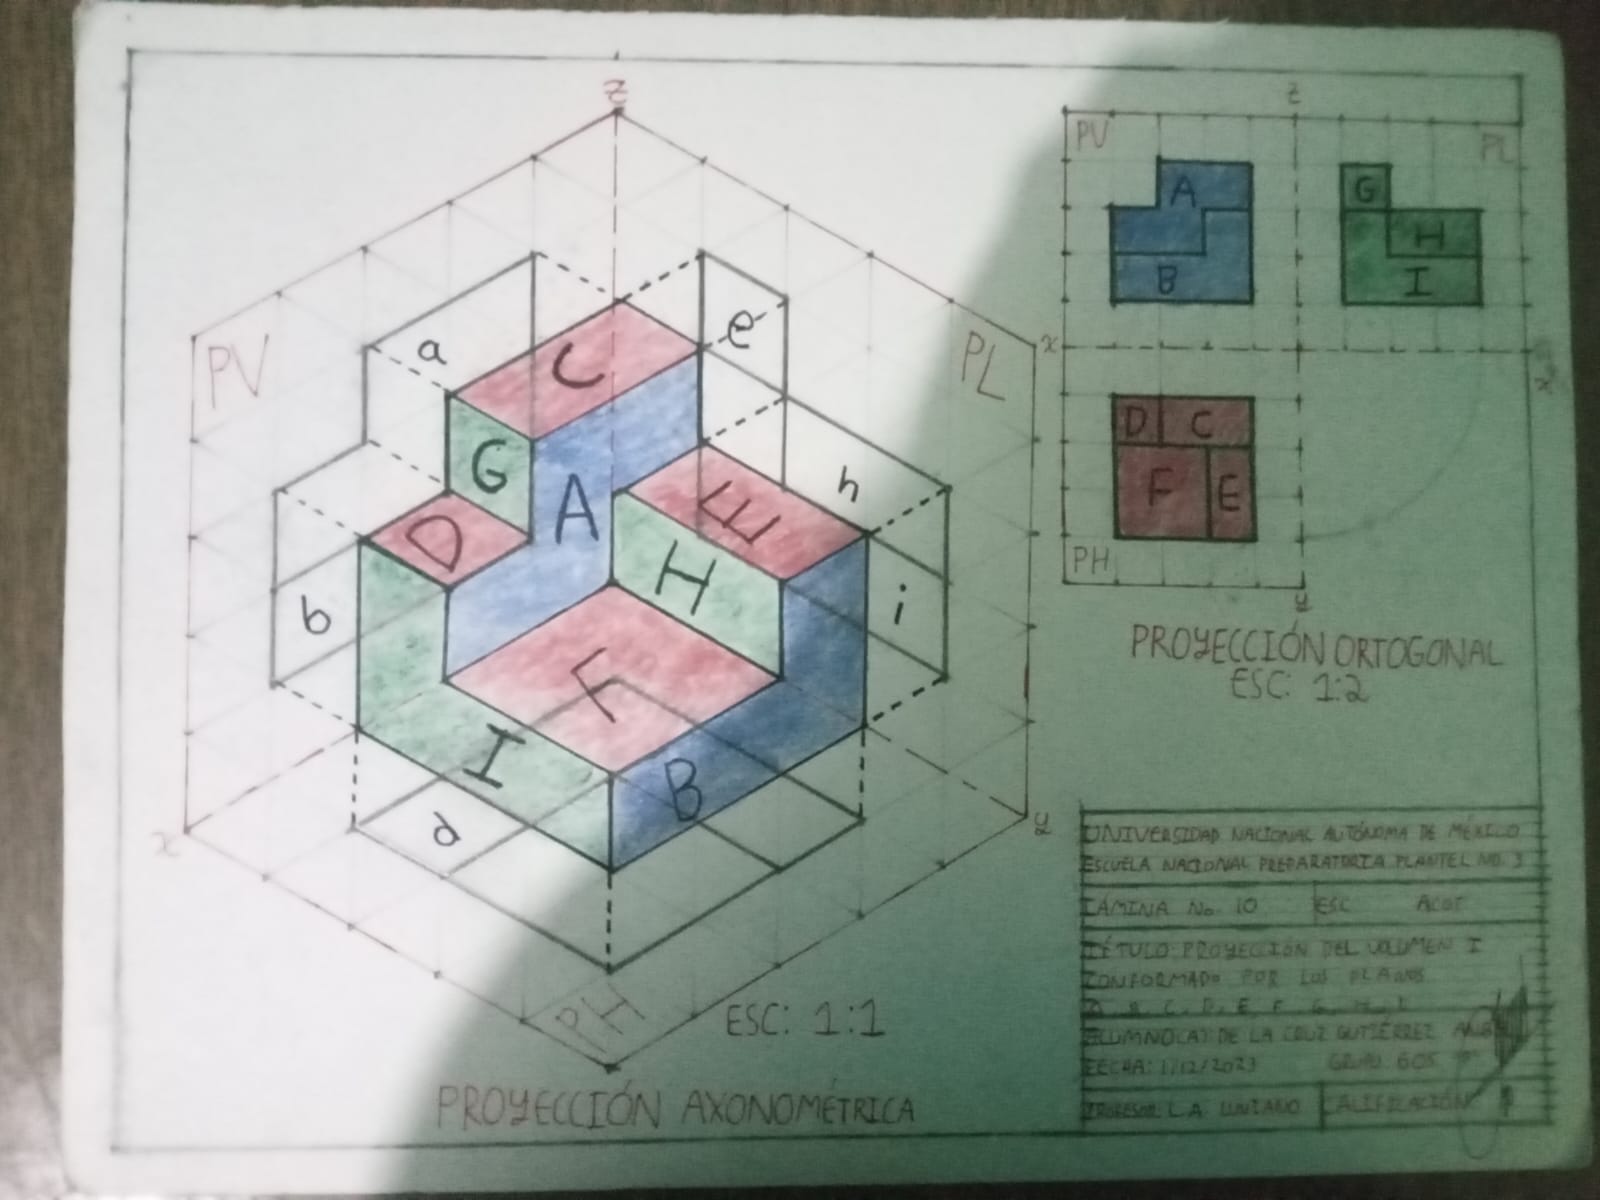 z
PV
PL
a
e
C
G
A
D
E
H
h
b
i
F
I
B
d
x
y
PH
ESC: 1:1
PROYECCIÓN AXONOMÉTRICA
z
PV
PL
A
G
H
B
I
x
x
D C
F E
PH
y
PROYECCIÓN ORTOGONAL
ESC: 1:2
UNIVERSIDAD NACIONAL AUTÓNOMA DE MÉXICO
ESCUELA NACIONAL PREPARATORIA PLANTEL NO. 3
LÁMINA No. 10 ESC ACOT
TÍTULO: PROYECCIÓN DEL VOLUMEN I
CONFORMADO POR LOS PLANOS
A, B, C, D, E, F, G, H, I
ALUMNO(A): DE LA CRUZ GUTIÉRREZ
FECHA: 1/12/2023 GRUPO 605
PROFESOR L.A. CALIFICACIÓN